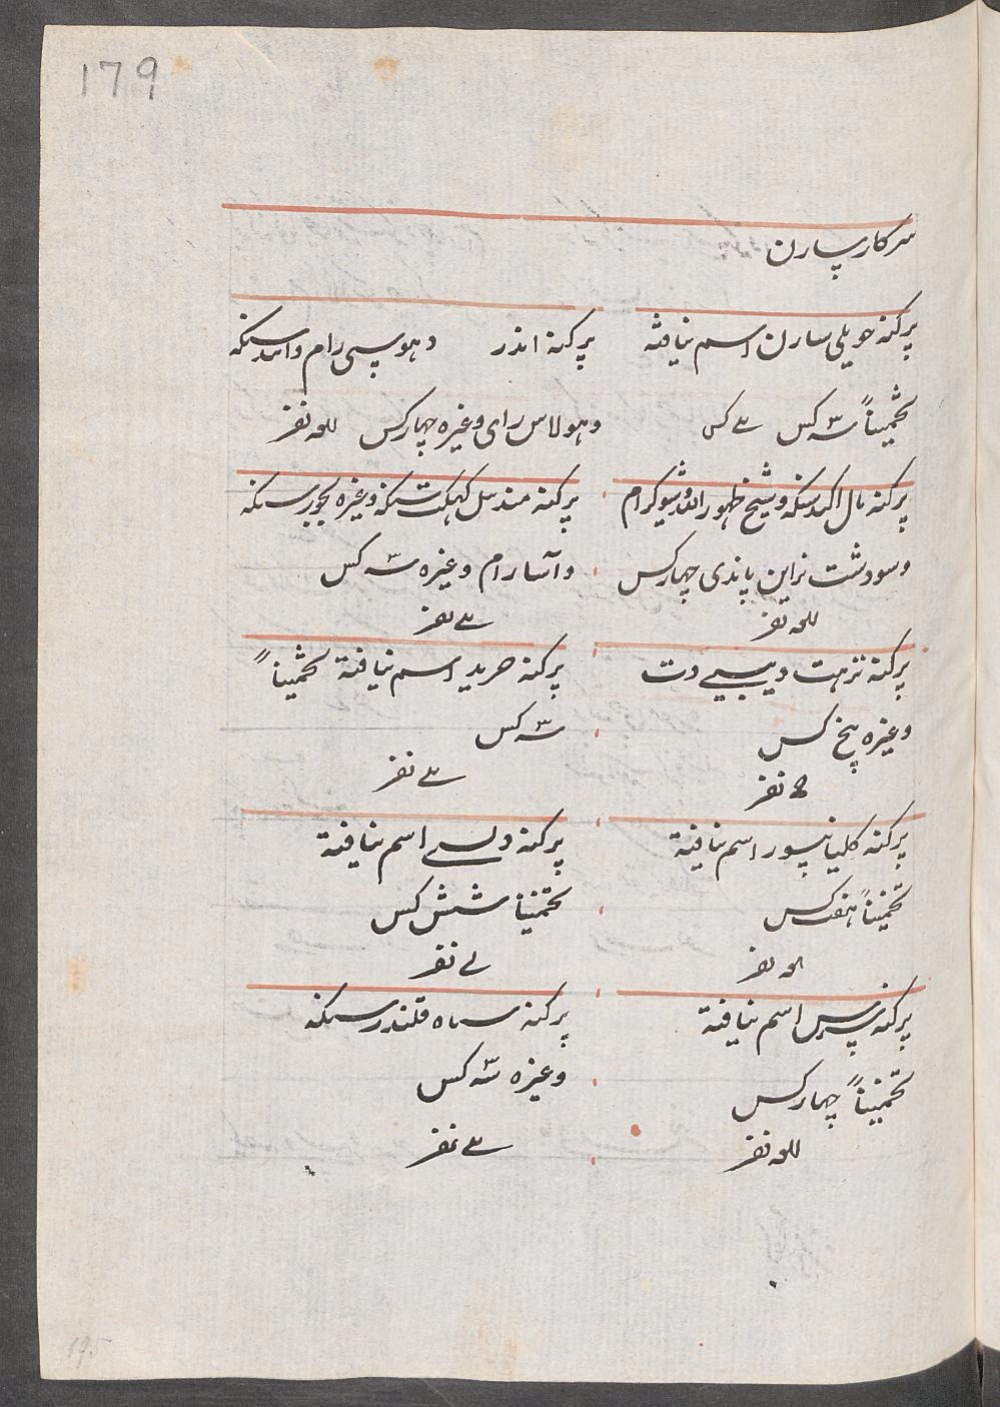 179
سرکار سارن
پرکنه حویلی سارن اسم نیافته
تخمیناً سه کس
پرکنه اندر دهوپسی رام و انندسنکه
وهولاس رای وغیره چهارکس للعه نفر
پرکنه بال اکندسنکه و شیخ ظهور الله و شیوکرام
وسودشت نراین پاندی چهارکس
للعه نفر
پرکنه مندهل کهکت سنکه وغیره بجورسنکه
و آسارام وغیره سه کس
نفر
پرکنه ترهت دیبی دت
وغیره پنج کس
نفر
پرکنه حرید اسم نیافته تخمیناً
سه کس
نفر
پرکنه کلیانپور اسم نیافته
تخمیناً هفت کس
نفر
پرکنه دلسی اسم نیافته
تخمیناً شش کس
نفر
پرکنه پرس اسم نیافته
تخمیناً چهارکس
للعه نفر
پرکنه سماه قلندرسنکه
وغیره سه کس
نفر
195